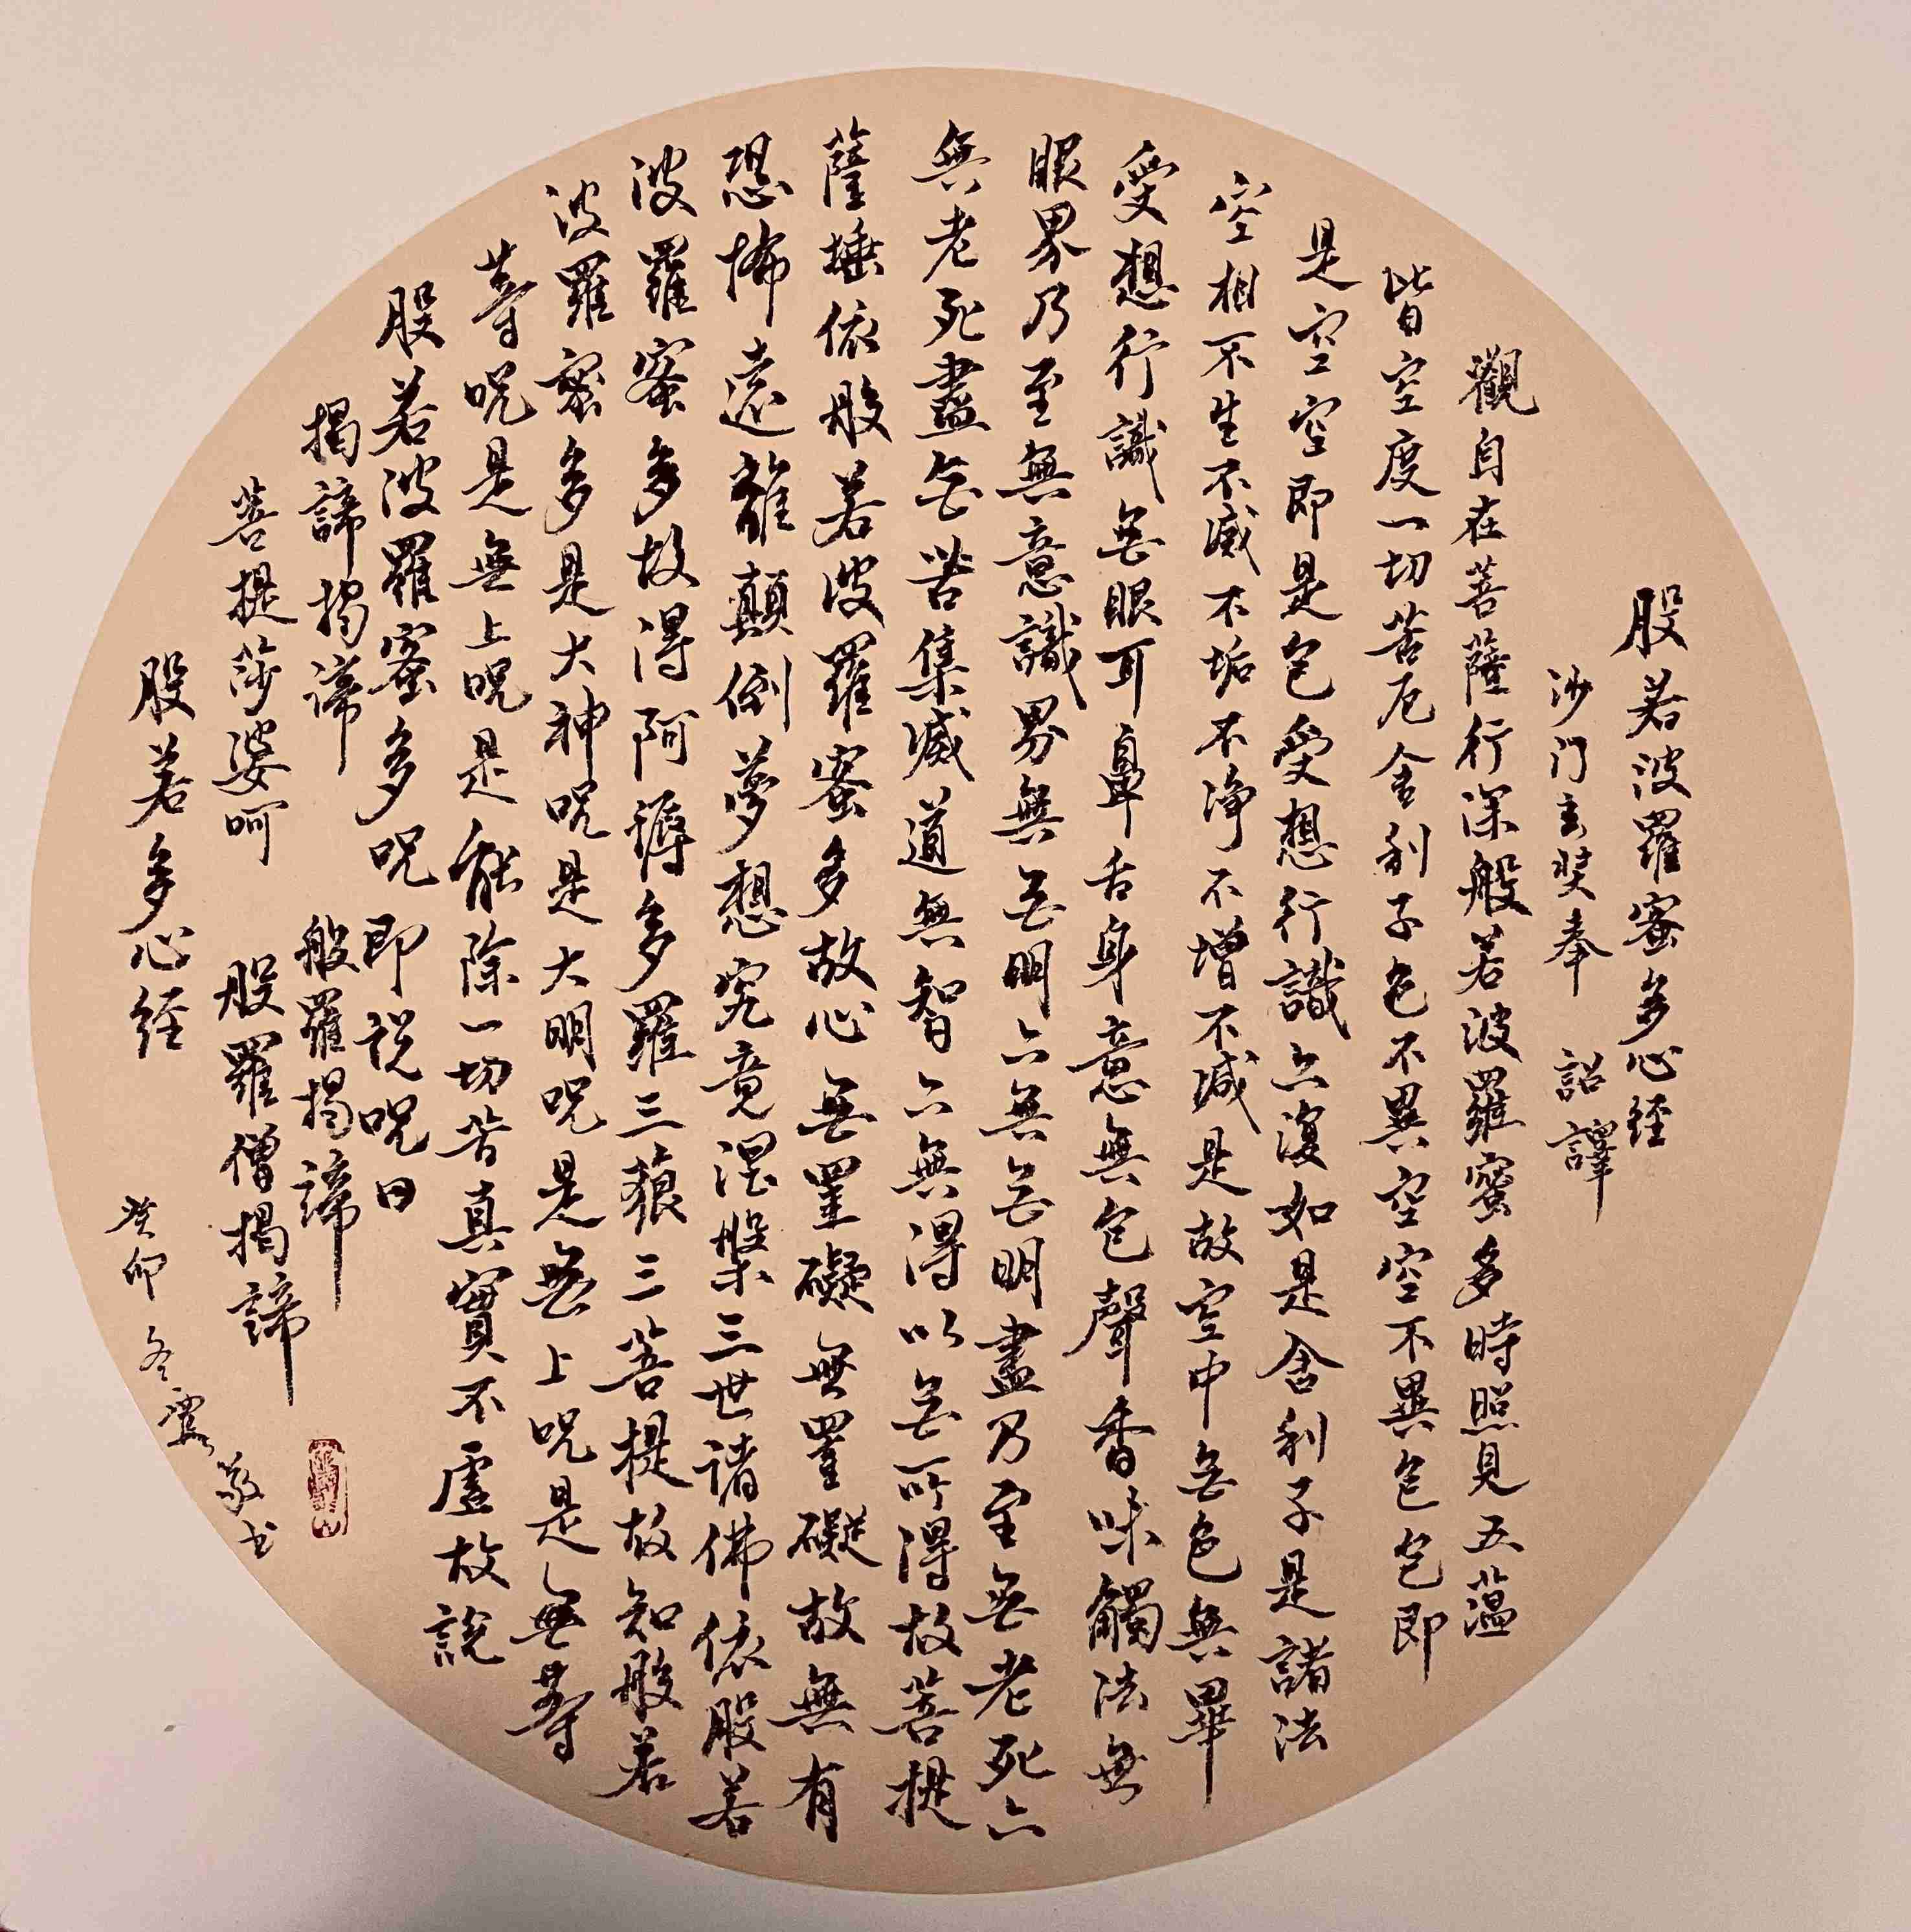 般若波羅蜜多心经
沙门玄奘奉 詔譯
觀自在菩薩行深般若波羅蜜多時照見五蕰
皆空度一切苦厄舍利子色不異空空不異色色即
是空空即是色受想行識亦復如是舍利子是諸法
空相不生不滅不垢不净不增不減是故空中無色無畢
受想行識無眼耳鼻舌身意無色聲香味觸法無
眼界乃至無意識界無無明亦無無明盡乃至無老死亦
無老死盡無苦集滅道無智亦無得以無所得故菩提
薩埵依般若波羅蜜多故心無罣礙無罣礙故無有
恐怖遠離顛倒夢想究竟涅槃三世諸佛依般若
波羅蜜多故得阿耨多羅三藐三菩提故知般若
波羅蜜多是大神咒是大明咒是無上咒是無等
等咒是無上咒是能除一切苦真實不虛故說
般若波羅蜜多咒即说咒曰
揭諦揭諦 般羅揭諦
菩提莎婆呵 般羅僧揭諦
般若多心经 癸卯冬霞敬书